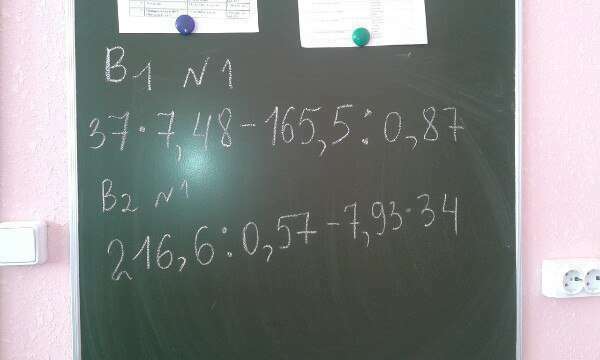 В1 N1
37·7,48-165,5:0,87
В2 N1
216,6:0,57-7,93·34